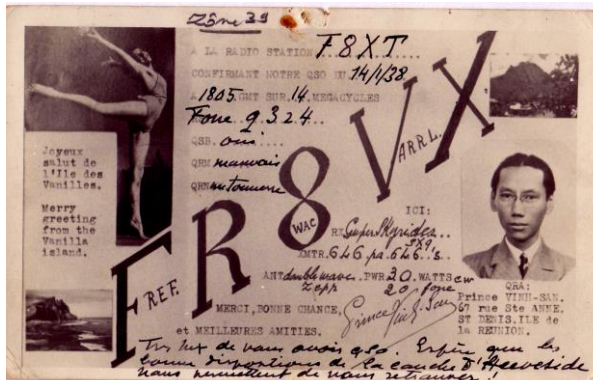 Zône 39
A LA RADIO STATION F8XT
CONFIRMANT NOTRE QSO DU 14/1/38
A 1805 GMT SUR 14 MEGACYCLES
Fone q 3 2 4
QSB. oui
QRM mauvais
QRN
Joyeux
salut de
l'Ile des
Vanilles.
Merry
greeting
from the
Vanilla
island.
FR8VX
REF.
WAC
ARRL.
ICI:
RX Super Skyrider
SX9
XMTR. 6L6 pa. 6L6
ANT double wave PWR 30 WATTS cw
Zepp 20 fone
MERCI, BONNE CHANCE,
et MEILLEURES AMITIES.
Prince Vinh-San
QRA:
Prince VINH-SAN.
67 rue Ste ANNE.
ST DENIS. ILE de
la REUNION.
de vous avoir qso. Espère que les
bonnes dispositions de la couche d'Heaviside
nous permettent de nous retrouver!